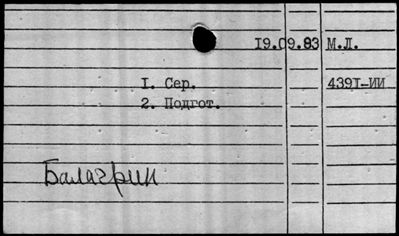 19.09.83 М.Л.
1. Сер. 439I-ИИ
2. Подгот.
Балагрин